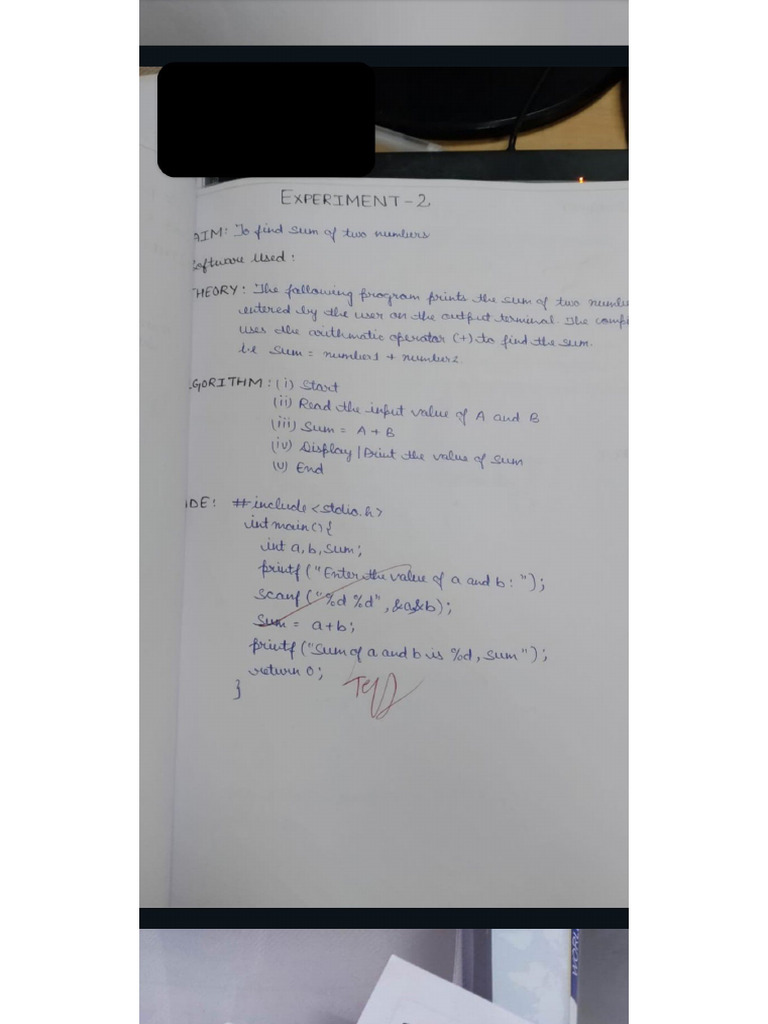 EXPERIMENT-2
AIM: To find sum of two numbers
Software Used:
THEORY: The following program prints the sum of two numbe
entered by the user on the output terminal. The comp
uses the arithmatic operator (+) to find the sum.
i.e sum = number1 + number2
LGORITHM: (i) Start
(ii) Read the input value of A and B
(iii) Sum = A+B
(iv) Display/Print the value of sum
(v) End
DE: #include <stdio.h>
int main(){
int a, b, sum;
printf ("Enter the value of a and b: ");
scanf ("%d %d", &a,&b);
Sum = a+b;
printf ("Sum of a and b is %d, sum");
return 0;
}